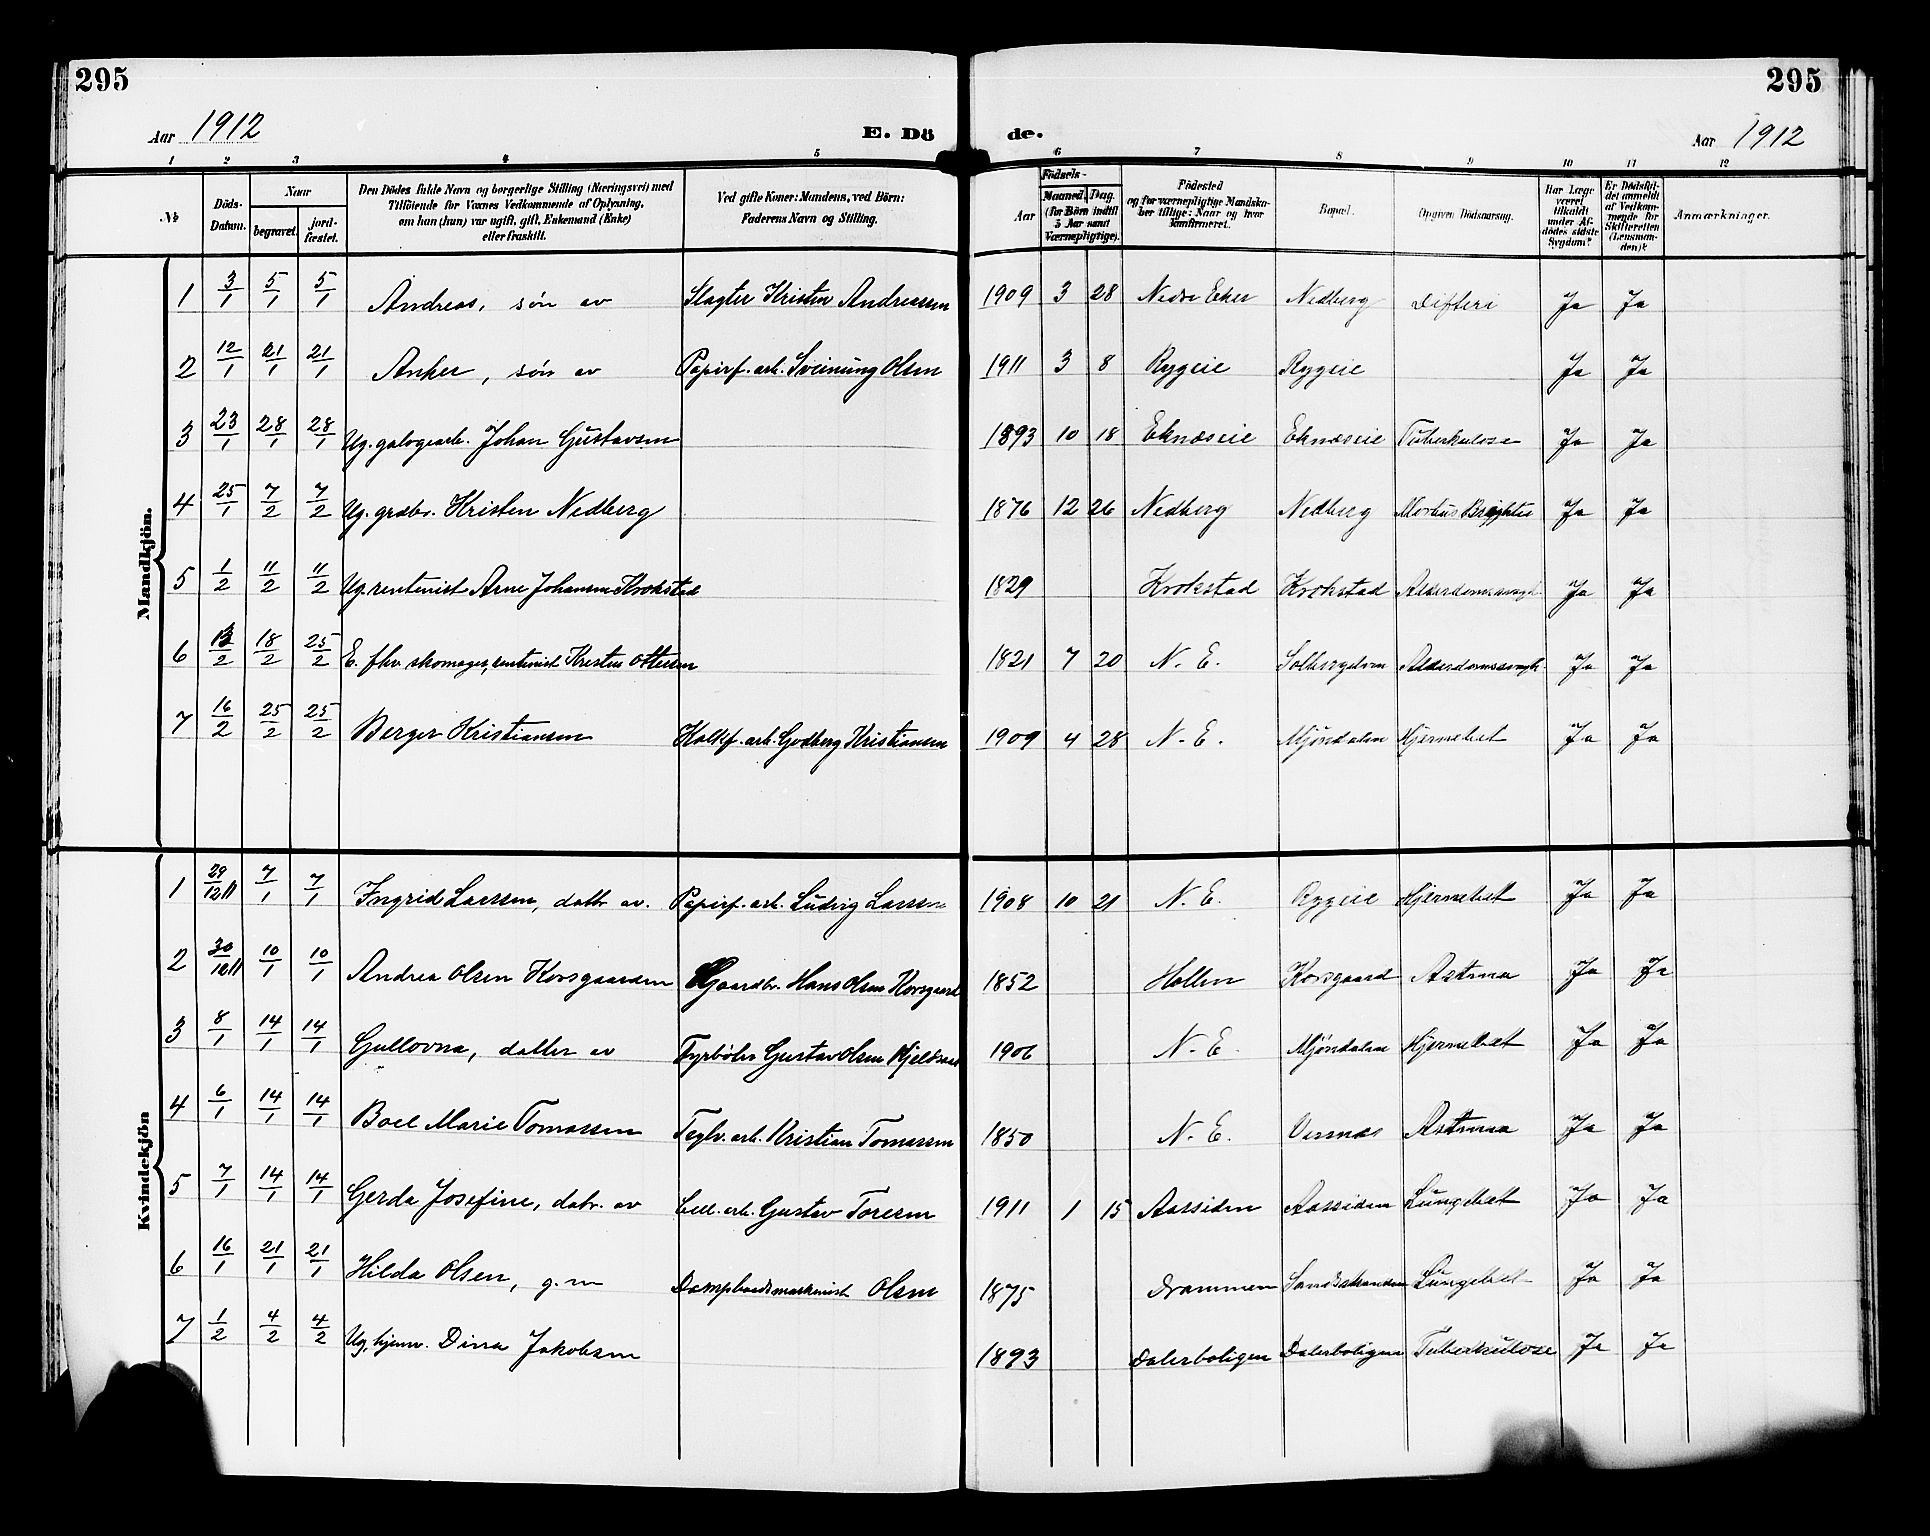 295
295
Aar 1912
E. Dö
de.
Aar 1912
1 2 3 4 5 6 7 8 9 10 11 12
№
Döds-Datum.
Naar
begravet.
jord-fæstet.
Den Dödes fulde Navn og borgerlige Stilling (Næringsvei) med
Tilföiende for Voxnes Vedkommende af Oplysning,
om han (hun) var ugift, gift, Enkemand (Enke)
eller fraskilt.
Ved gifte Koner: Mandens, ved Börn:
Faderens Navn og Stilling.
Födsels-
Aar
Maaned. Dag.
(for Börn indtil
5 Aar samt
Værnepligtige).
Födested
og for værnepligtige Mandska-
ber tillige: Naar og hvor
konfirmeret.
Bopæl.
Opgiven Dödsaarsag.
Har Læge
været
tilkaldt
under Af-
dödes sidste
Sygdom?
Er Dödsfal-
det anmeldt
af Vedkom-
mende for
Skifteretten
(Lensman-
den)?
Anmærkninger.
Mandkjön.
1 3/1 5/1 5/1 Andreas, søn av Slagter Kristen Andreassen 1909 3 28 Nedre Eker Nedberg Difteri Ja Ja
2 12/1 21/1 21/1 Anker, søn av Papirf. arb. Sveinung Olsen 1911 3 8 Rygeie Rygeie Ja Ja
3 23/1 28/1 28/1 Ug. galogearb. Johan Gustavsen 1893 10 18 Eknæseie Eknæseie Tuberkulose Ja Ja
4 25/1 7/2 7/2 Ug. grdbr. Kristen Nedberg 1876 12 26 Nedberg Nedberg Morbus Brightii Ja Ja
5 1/2 11/2 11/2 Ug. rentenist Arne Johansen Krokstad 1829 Krokstad Krokstad Alderdomssvagh. Ja Ja
6 18/2 25/2 E. fhv. skomager, rentenist Kristen Ottersen 1821 7 20 N. E. Solbergelven Alderdomssvagh. Ja Ja
7 16/2 25/2 25/2 Berger Kristiansen Kalkf. arb. Godberg Kristiansen 1909 4 28 N. E. Mjøndalen Hjernebet Ja Ja
Kvindekjön
1 29/12 11 7/1 7/1 Ingrid Larssen, dattr av. Papirf. arb. Ludvig Larssen 1908 10 21 N. E. Rygeie Hjernebet Ja Ja
2 10/1 10/1 Andrea Olsen Korsgaarden Gaardbr. Hans Olsen Korsgaard 1852 Hollen Korsgaard Astma Ja Ja
3 8/1 14/1 14/1 Gullovna, datter av Fyrbøter Gustav Olsen 1906 N. E. Mjøndalen Hjernebet Ja Ja
4 6/1 14/1 14/1 Boel Marie Tomassen Teglv. arb. Kristian Tomassen 1850 N. E. Astma Ja Ja
5 7/1 14/1 14/1 Gerda Josefine, datr. av Cell. arb. Gustav Toresen 1911 1 15 Aassiden Aassiden Lungebet Ja Ja
6 16/1 21/1 21/1 Hilda Olsen, g. m Dampbaadsmaskinist Olsen 1875 Drammen Sandstranden Lungebet Ja Ja
7 1/2 4/2 4/2 Ug, hjemv. Dina Jakobsen 1893 Dalerboligen Dalerboligen Tuberkulose Ja Ja